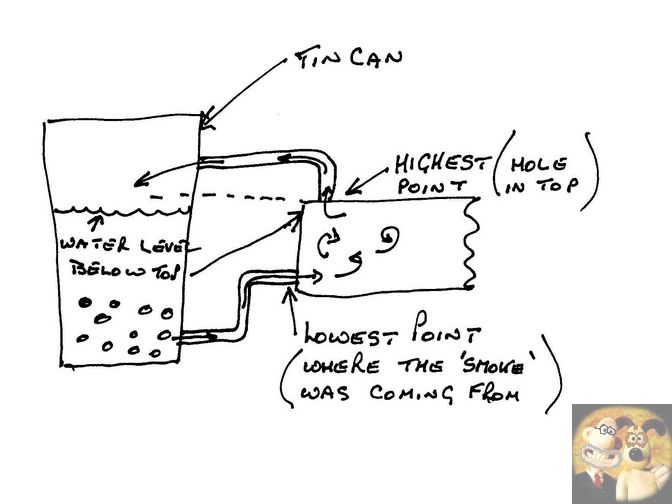 TIN CAN
HIGHEST (HOLE
POINT IN TOP)
WATER LEVEL
BELOW TOP
LOWEST POINT
(WHERE THE 'SMOKE'
WAS COMING FROM)